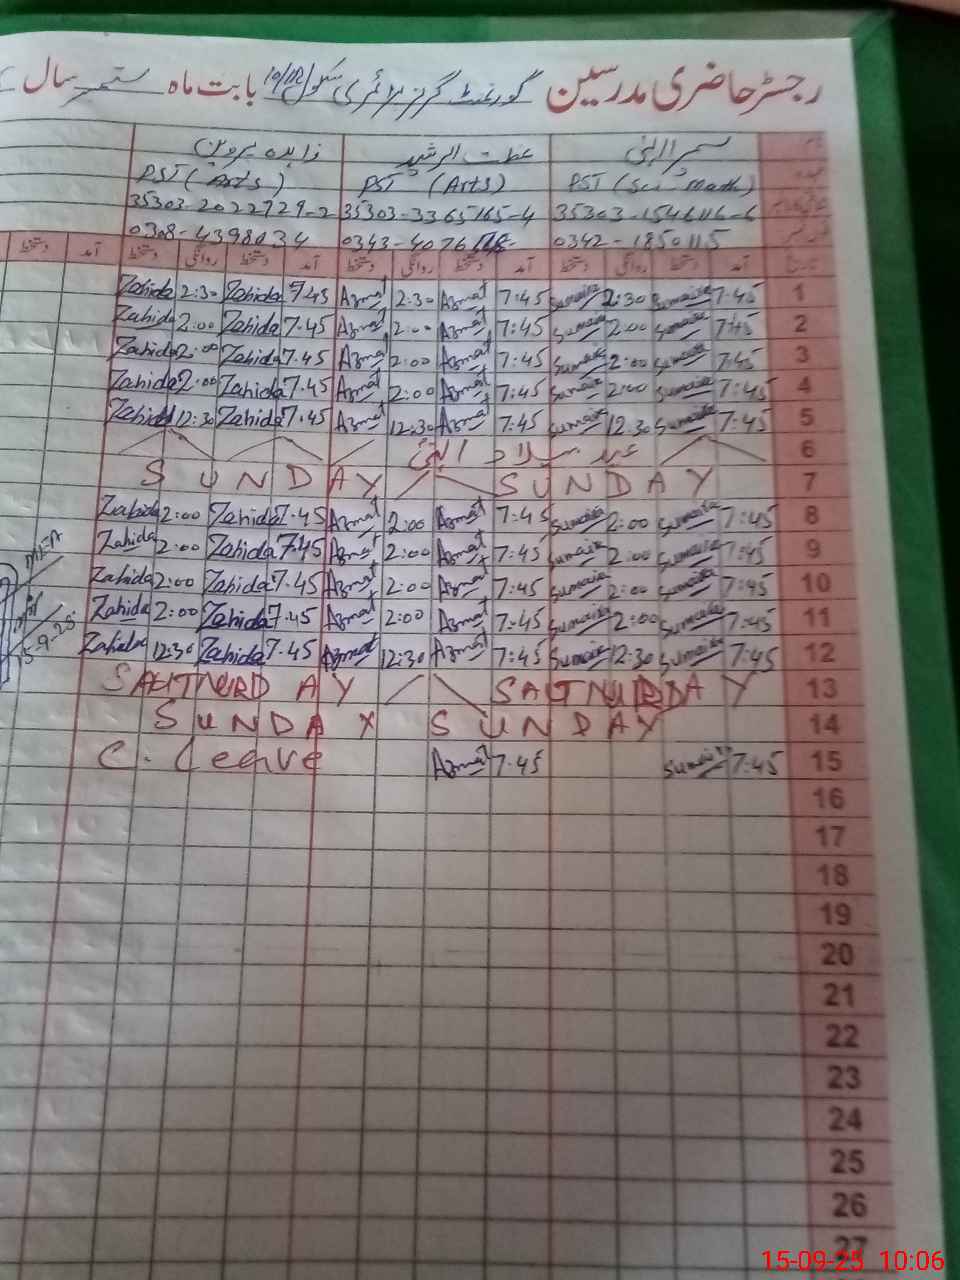 رجسٹر حاضری مدرسین گورنمنٹ گرلز پرائمری سکول 10/11R بابت ماہ ستمبر سال
عظمت الرشید زاہدہ پروین
PST (Sci-Math) PST (Arts) PST (Arts)
35303-1546116-6 35303-3365165-4 35303-2022729-2
0342-1850115 0343-4076 0308-4398034
تاریخ آمد دستخط روانگی دستخط آمد دستخط روانگی دستخط آمد دستخط روانگی دستخط آمد دستخط
1 7:45 Sumaira 2:30 Sumaira 7:45 Azmat 2:30 Azmat 7:45 Zahida 2:30 Zahida
2 7:45 Sumaira 2:00 Sumaira 7:45 Azmat 2:00 Azmat 7.45 Zahida 2:00 Zahida
3 7:45 Sumaira 2:00 Sumaira 7:45 Azmat 2:00 Azmat 7.45 Zahida 2:00 Zahida
4 7:45 Sumaira 2:00 Sumaira 7:45 Azmat 2:00 Azmat 7.45 Zahida 2:00 Zahida
5 7:45 Sumaira 12:30 Sumaira 7:45 Azmat 12:30 Azmat 7.45 Zahida 12:30 Zahida
6 عید میلاد النبی
7 SUNDAY SUNDAY
8 7:45 Sumaira 2:00 Sumaira 7:45 Azmat 2:00 Azmat 7.45 Zahida 2:00 Zahida
9 7:45 Sumaira 2:00 Sumaira 7:45 Azmat 2:00 Azmat 7.45 Zahida 2:00 Zahida
10 7:45 Sumaira 2:00 Sumaira 7:45 Azmat 2:00 Azmat 7.45 Zahida 2:00 Zahida
11 7:45 Sumaira 2:00 Sumaira 7:45 Azmat 2:00 Azmat 7.45 Zahida 2:00 Zahida
12 7:45 Sumaira 12:30 Sumaira 7:45 Azmat 12:30 Azmat 7.45 Zahida 12:30 Zahida
MEA
15-9-25
13
14 SUNDAY SUNDAY
15 7:45 Sumaira 7.45 Azmat C. Leave
16
17
18
19
20
21
22
23
24
25
26
27
15-09-25 10:06